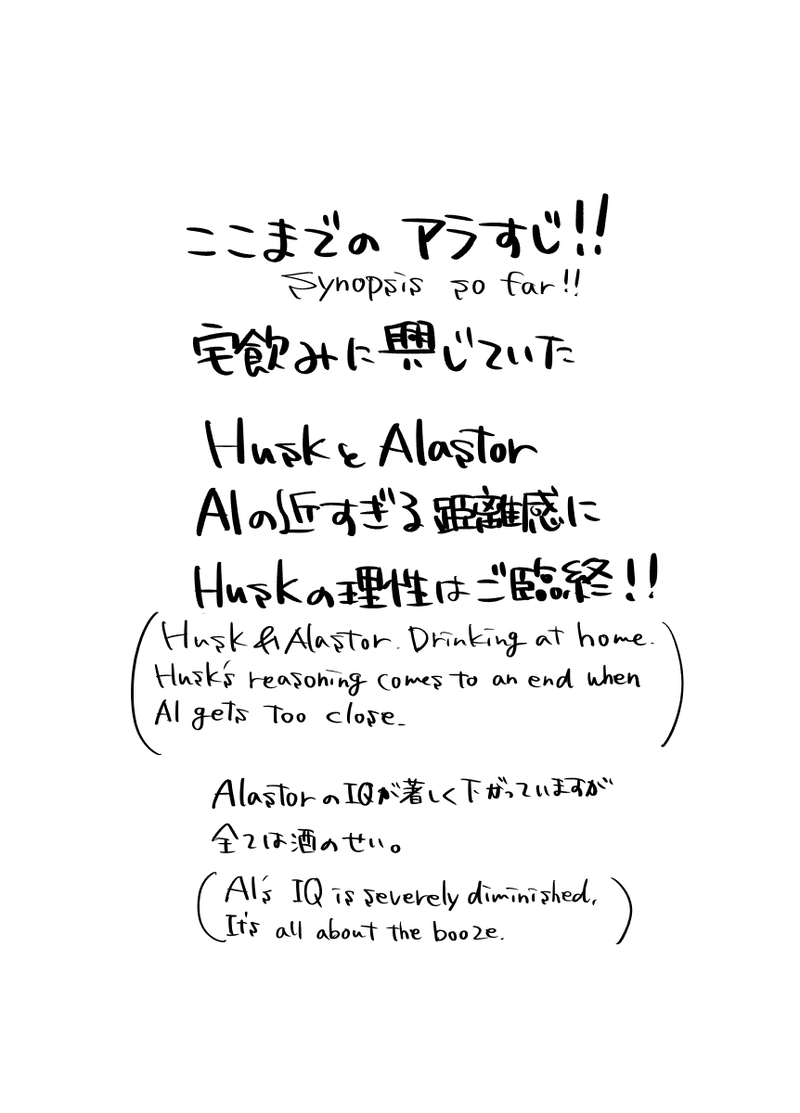 ここまでの アラすじ!!
Synopsis so far!!
宅飲みに興じていた
Huskと Alastor
Alの近すぎる距離感に
Huskの理性はご臨終!!
(Husk & Alastor. Drinking at home.
Husk's reasoning comes to an end when
Al gets too close.)
AlastorのIQが著しく下がっていますが
全ては酒のせい。
(Al's IQ is severely diminished,
It's all about the booze.)